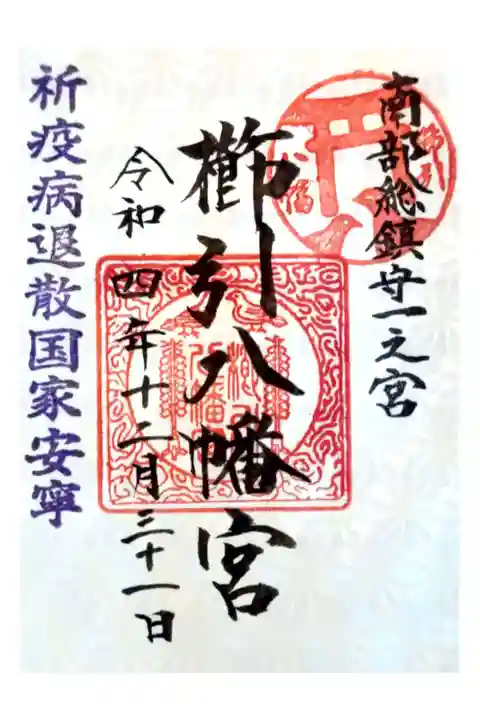 南部総鎮守一之宮
櫛引八幡宮
令和四年十二月三十一日
祈疫病退散国家安寧
櫛引
八幡